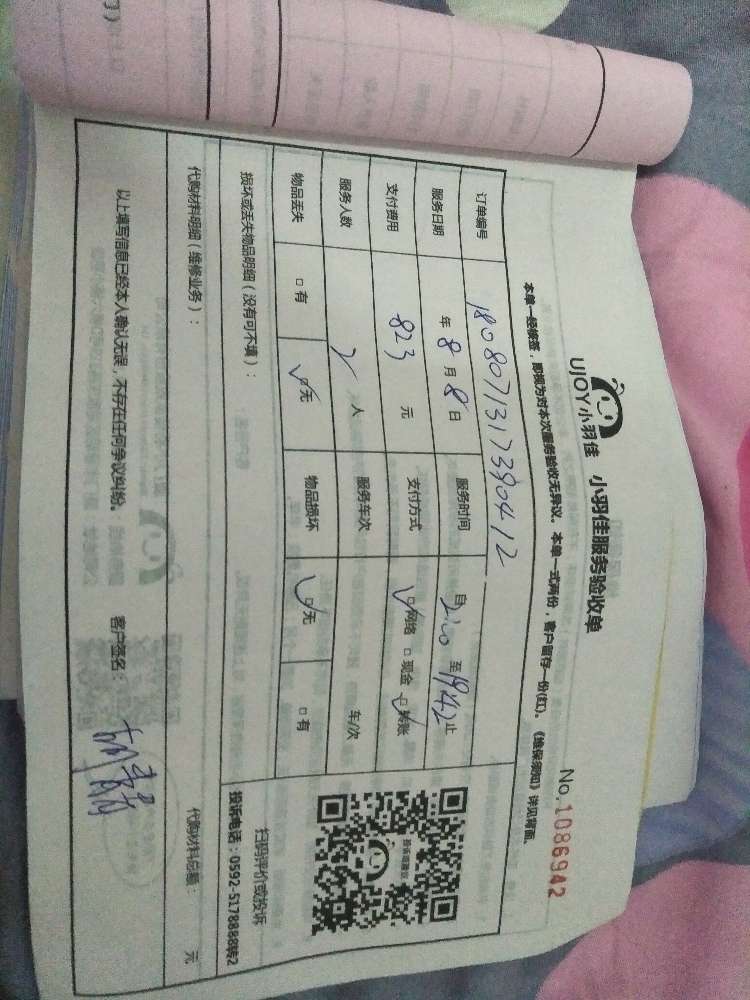 UJOY小羽佳 小羽佳服务验收单
No.1086942
本单一经接签，即视为对本次服务验收无异议。本单一式两份，客户留存一份(红)。《维保须知》详见背面。
订单编号 1808071317390412
服务日期 年 8 月 8 日 服务时间 自 至 19:42 止
支付费用 823 元 支付方式 □网络 □现金 □转账
服务人数 2 人 服务车次 车/次
物品丢失 □有 □无 物品损坏 □无 □有
损坏或丢失物品明细（没有可不填）：
扫码评价或投诉
投诉电话：0592-5178888转2
代购材料明细（维修业务）： 代购材料总额： 元
以上填写信息已经本人确认无误，不存在任何争议纠纷。 客户签名：